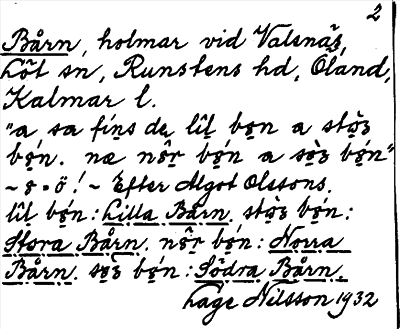 2
Bårn, holmar vid Valsnäs,
Löt sn, Runstens hd, Öland,
Kalmar l.
"a sa fíns de lîl bo̱n a stò̱з
bó̱n. næ nô̱r bó̱n a sò̱з bó̱n"
~ 8 = ö! ~ Efter Algot Olssons.
lîl bó̱n: Lilla Bårn. stò̱з bó̱n:
Stora Bårn. nô̱r bó̱n: Norra
Bårn. sò̱з bó̱n: Södra Bårn.
Lage Nilsson 1932